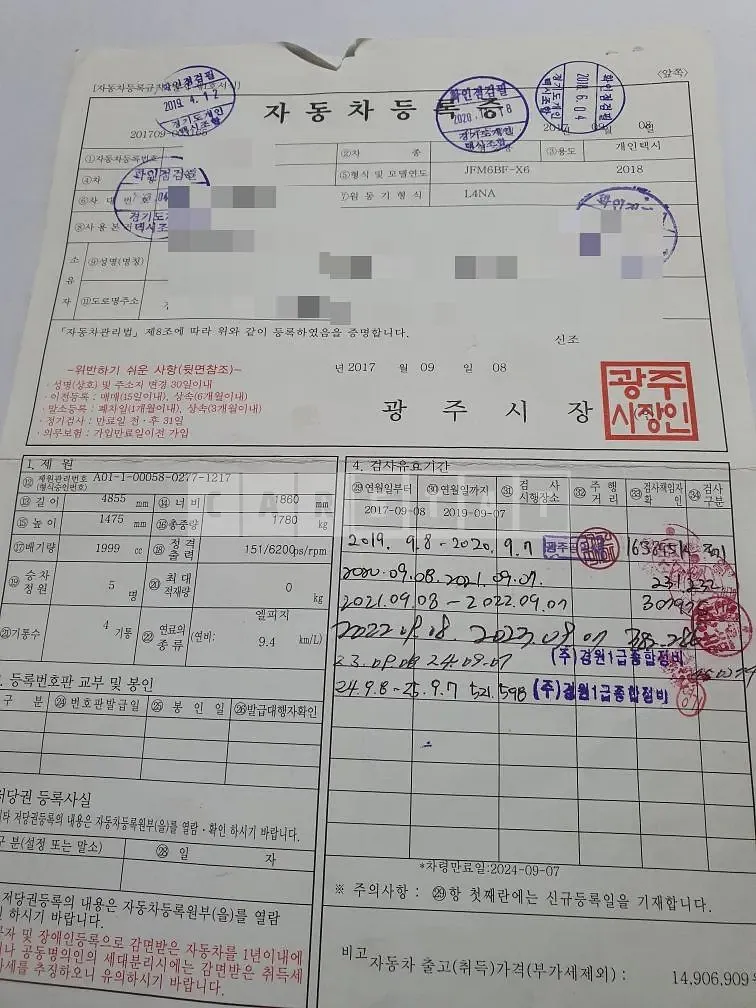 〈앞쪽〉
자동차등록증
확인점검필
2019. 4. 12
경기도개인
택시조합
확인점검필
경기도개인
택시조합
확인점검필
2018. 6. 04
경기도개인
택시조합
2017 09 08
①자동차등록번호 ②차 종 ③용도 개인택시
④차 ⑤형식 및 모델연도 JFM6BF-X6 2018
⑥차대번호 ⑦원동기형식 L4NA
⑧사용본거지
확인점검필
소유자 ⑨성명(명칭)
⑪도로명주소
「자동차관리법」 제8조에 따라 위와 같이 등록하였음을 증명합니다.
신조
년 2017 월 09 일 08
-위반하기 쉬운 사항(뒷면참조)-
· 성명(상호) 및 주소지 변경 30일이내
· 이전등록 : 매매(15일이내), 상속(6개월이내)
· 말소등록 : 폐차일(1개월이내), 상속(3개월이내)
· 정기검사 : 만료일 전·후 31일
· 의무보험 : 가입만료일이전 가입
광주시장
광주
시장인
1. 제원
⑫ 제원관리번호 (형식승인번호) A01-1-00058-0277-1217
⑬길이 4855 mm ⑭너비 1860 mm
⑮높이 1475 mm ⑯총중량 1780 kg
⑰배기량 1999 cc ⑱정격출력 151/6200 ps/rpm
⑲승차정원 5 명 ⑳최대적재량 0 kg
㉑기통수 4 기통 ㉒연료의종류 엘피지 (연비: 9.4 km/L)
등록번호판 교부 및 봉인
구 분 ㉔번호판발급일 ㉕봉인일 ㉖발급대행자확인
저당권 등록사실
타 저당권등록의 내용은 자동차등록원부(을)를 열람·확인 하시기 바랍니다.
구 분(설정 또는 말소) ㉘ 일 자
저당권등록의 내용은 자동차등록원부(을)를 열람
하시기 바랍니다.
자 및 장애인등록으로 감면받은 자동차를 1년이내에
나 공동명의인의 세대분리시에는 감면받은 취득세
세를 추징하오니 유의하시기 바랍니다.
4. 검사유효기간
㉙연월일부터 ㉚연월일까지 ㉛검사시행장소 ㉜주행거리 ㉝검사책임자확인 ㉞검사구분
2017-09-08 2019-09-07
2019. 9.8 - 2020. 9.7
2020.09.08. 2021.09.07. 231,232
2021.09.08 - 2022.09.07
2022.09.08. 2023.09.07 385,286
23.09.08 24.09.07 (주)경원1급종합정비
24.9.8 - 25.9.7 521,598 (주)경원1급종합정비
*차령만료일:2024-09-07
※ 주의사항 : ㉙항 첫째란에는 신규등록일을 기재합니다.
비고
자동차 출고(취득)가격(부가세제외) : 14,906,909